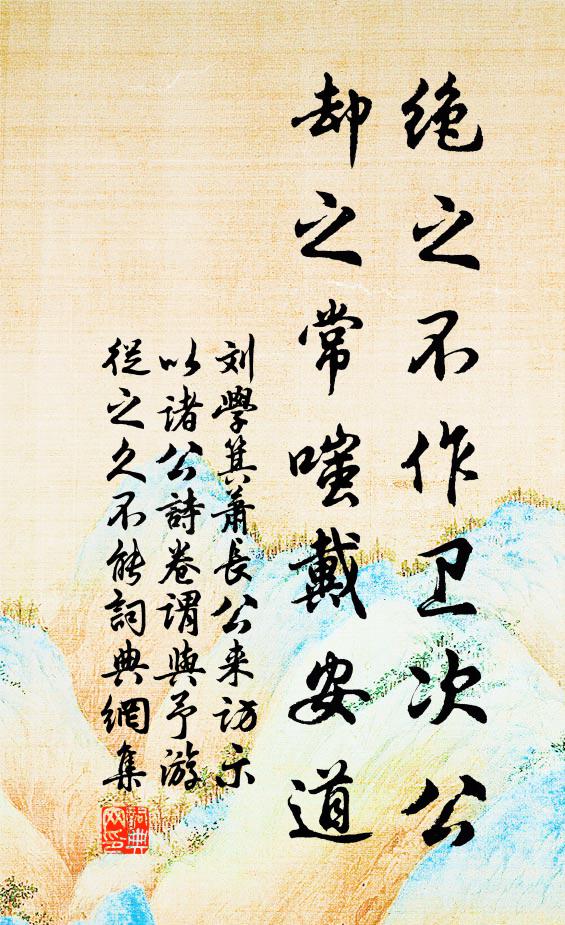 绝之不作卫次公
却之常嗤戴安道
刘學箕萧長公来访示
以诸公詩卷谓與予游
從之久不能詞典網集
詞典网印